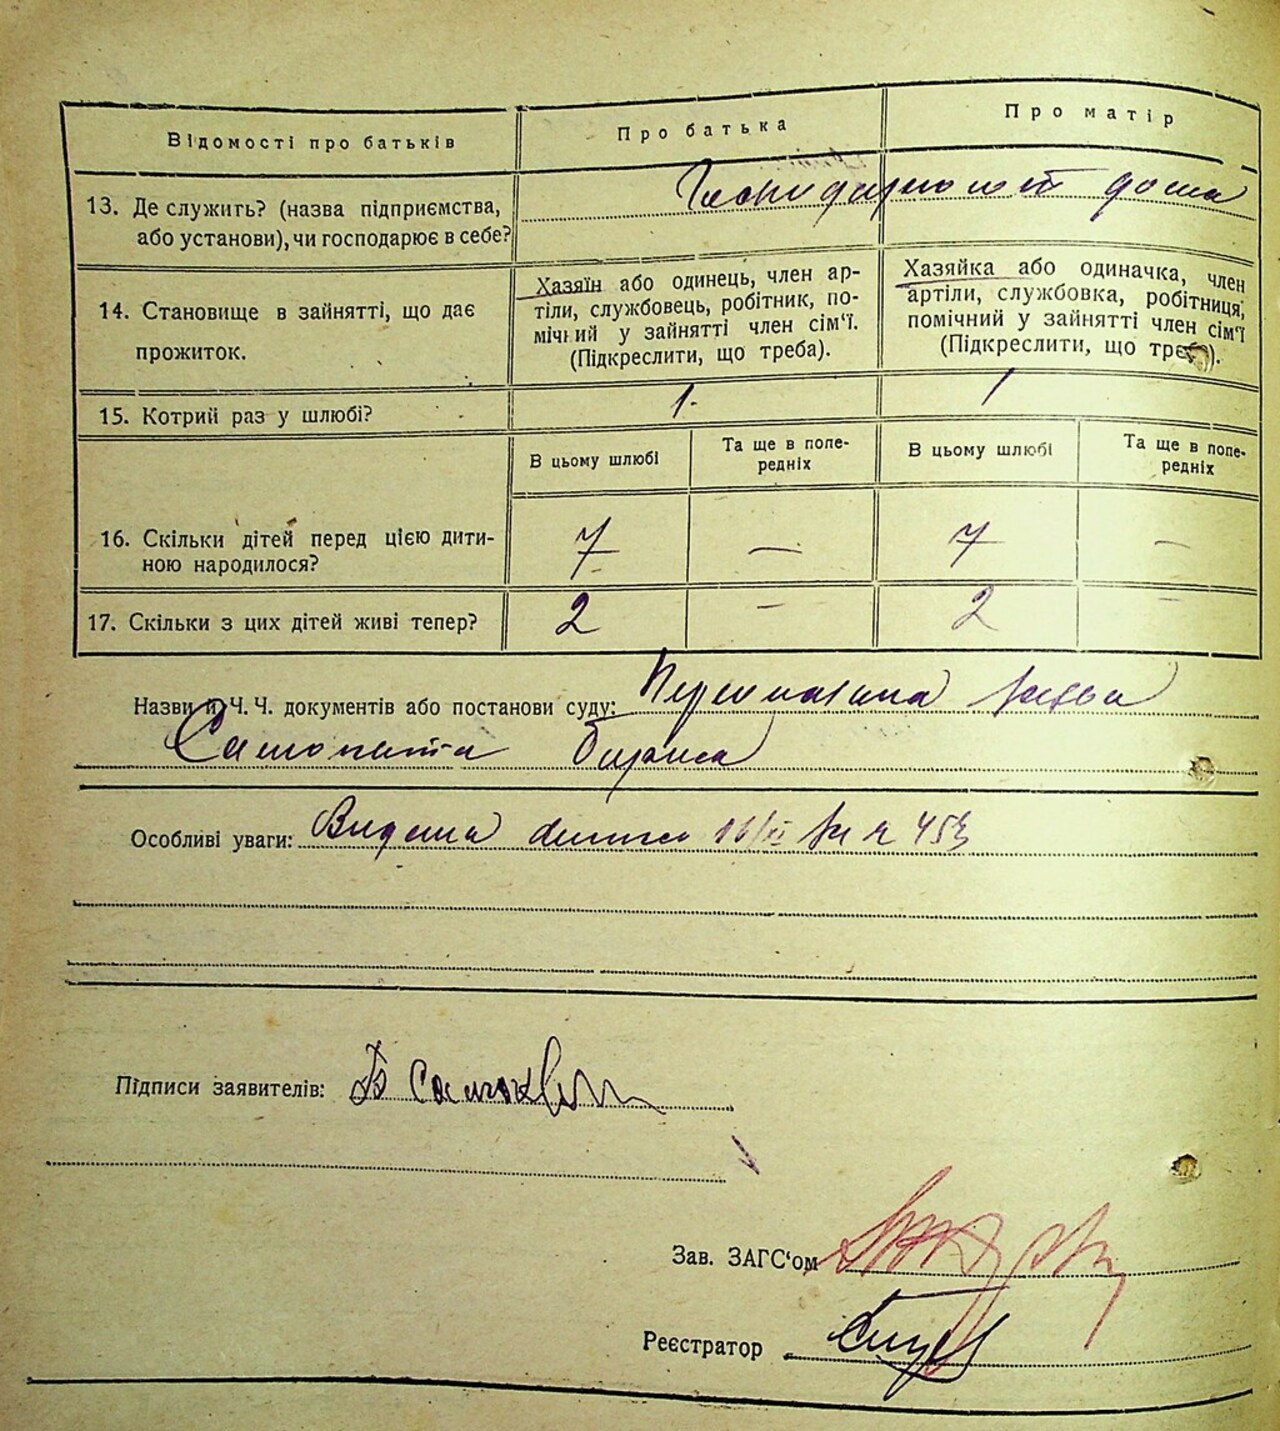 Відомості про батьків
Про батька
Про матір
13. Де служить? (назва підприємства,
або установи), чи господарює в себе?
Господарюют дома
14. Становище в зайнятті, що дає
прожиток.
Хазяїн або одинець, член ар-
тіли, службовець, робітник, по-
мічний у зайнятті член сім'ї.
(Підкреслити, що треба).
Хазяйка або одиначка, член
артіли, службовка, робітниця,
помічний у зайнятті член сім'ї
(Підкреслити, що треба).
15. Котрий раз у шлюбі?
1.
1
В цьому шлюбі
Та ще в попе-
редніх
В цьому шлюбі
Та ще в попе-
редніх
16. Скільки дітей перед цією дити-
ною народилося?
7
—
7
—
17. Скільки з цих дітей живі тепер?
2
—
2
—
Назви й Ч. Ч. документів або постанови суду:
Бориса
Особливі уваги: Видана 16/XI № 453
Підписи заявителів:
Зав. ЗАГС'ом
Реєстратор